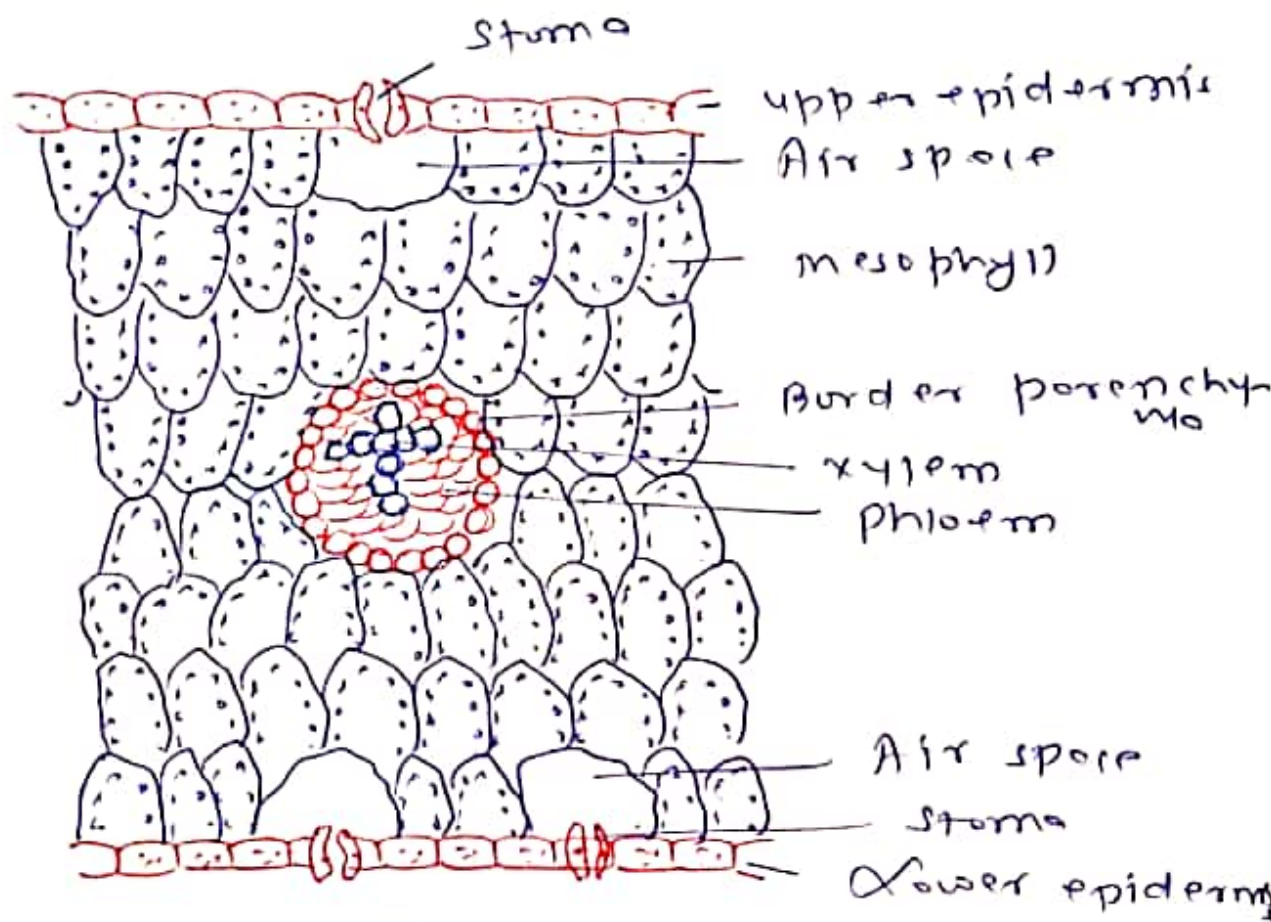 Stoma
upper epidermis
Air space
mesophyll
Border parenchy-
ma
xylem
Phloem
Air space
stoma
Lower epidermis